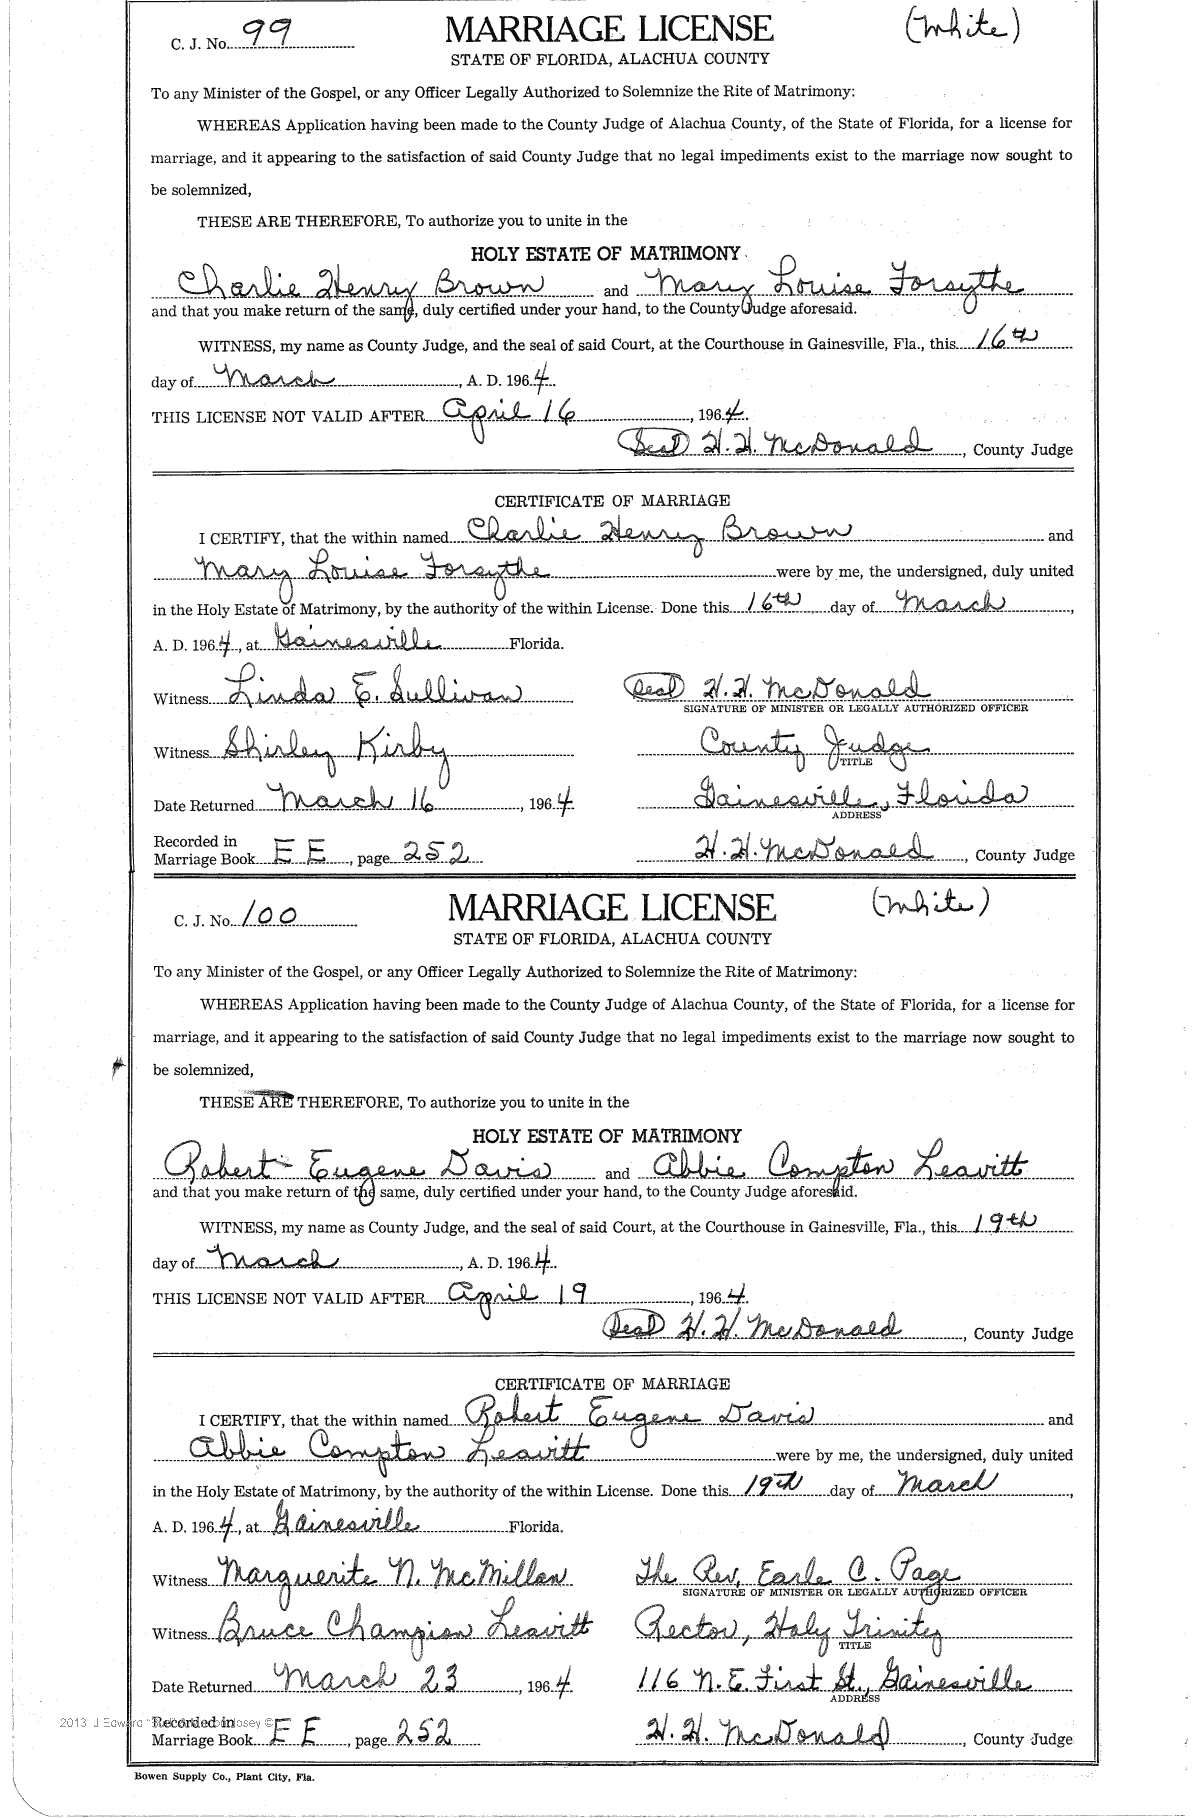 C. J. No. 99 MARRIAGE LICENSE (White)
STATE OF FLORIDA, ALACHUA COUNTY
To any Minister of the Gospel, or any Officer Legally Authorized to Solemnize the Rite of Matrimony:
WHEREAS Application having been made to the County Judge of Alachua County, of the State of Florida, for a license for
marriage, and it appearing to the satisfaction of said County Judge that no legal impediments exist to the marriage now sought to
be solemnized,
THESE ARE THEREFORE, To authorize you to unite in the
HOLY ESTATE OF MATRIMONY
Charlie Henry Brown and Mary Louise Forsythe
and that you make return of the same, duly certified under your hand, to the County Judge aforesaid.
WITNESS, my name as County Judge, and the seal of said Court, at the Courthouse in Gainesville, Fla., this 16th
day of March, A. D. 1964.
THIS LICENSE NOT VALID AFTER April 16, 1964.
(Seal) H. H. McDonald, County Judge
CERTIFICATE OF MARRIAGE
I CERTIFY, that the within named Charlie Henry Brown and
Mary Louise Forsythe were by me, the undersigned, duly united
in the Holy Estate of Matrimony, by the authority of the within License. Done this 16th day of March,
A. D. 1964, at Gainesville Florida.
Witness Linda E. Sullivan (Seal) H. H. McDonald
SIGNATURE OF MINISTER OR LEGALLY AUTHORIZED OFFICER
Witness Shirley Kirby County Judge
TITLE
Date Returned March 16, 1964 Gainesville, Florida
ADDRESS
Recorded in
Marriage Book EE, page 252 H. H. McDonald, County Judge
C. J. No. 100 MARRIAGE LICENSE (White)
STATE OF FLORIDA, ALACHUA COUNTY
To any Minister of the Gospel, or any Officer Legally Authorized to Solemnize the Rite of Matrimony:
WHEREAS Application having been made to the County Judge of Alachua County, of the State of Florida, for a license for
marriage, and it appearing to the satisfaction of said County Judge that no legal impediments exist to the marriage now sought to
be solemnized,
THESE ARE THEREFORE, To authorize you to unite in the
HOLY ESTATE OF MATRIMONY
Robert Eugene Davis and Abbie Compton Leavitt
and that you make return of the same, duly certified under your hand, to the County Judge aforesaid.
WITNESS, my name as County Judge, and the seal of said Court, at the Courthouse in Gainesville, Fla., this 19th
day of March, A. D. 1964.
THIS LICENSE NOT VALID AFTER April 19, 1964.
(Seal) H. H. McDonald, County Judge
CERTIFICATE OF MARRIAGE
I CERTIFY, that the within named Robert Eugene Davis and
Abbie Compton Leavitt were by me, the undersigned, duly united
in the Holy Estate of Matrimony, by the authority of the within License. Done this 19th day of March,
A. D. 1964, at Gainesville Florida.
Witness Marguerite N. McMillan The Rev. Earle C. Page
SIGNATURE OF MINISTER OR LEGALLY AUTHORIZED OFFICER
Witness Bruce Champion Leavitt Rector, Holy Trinity
TITLE
Date Returned March 23, 1964. 116 N. E. First St., Gainesville
ADDRESS
2013 J Edward
Recorded in
Marriage Book EE, page 252 H. H. McDonald, County Judge
Bowen Supply Co., Plant City, Fla.